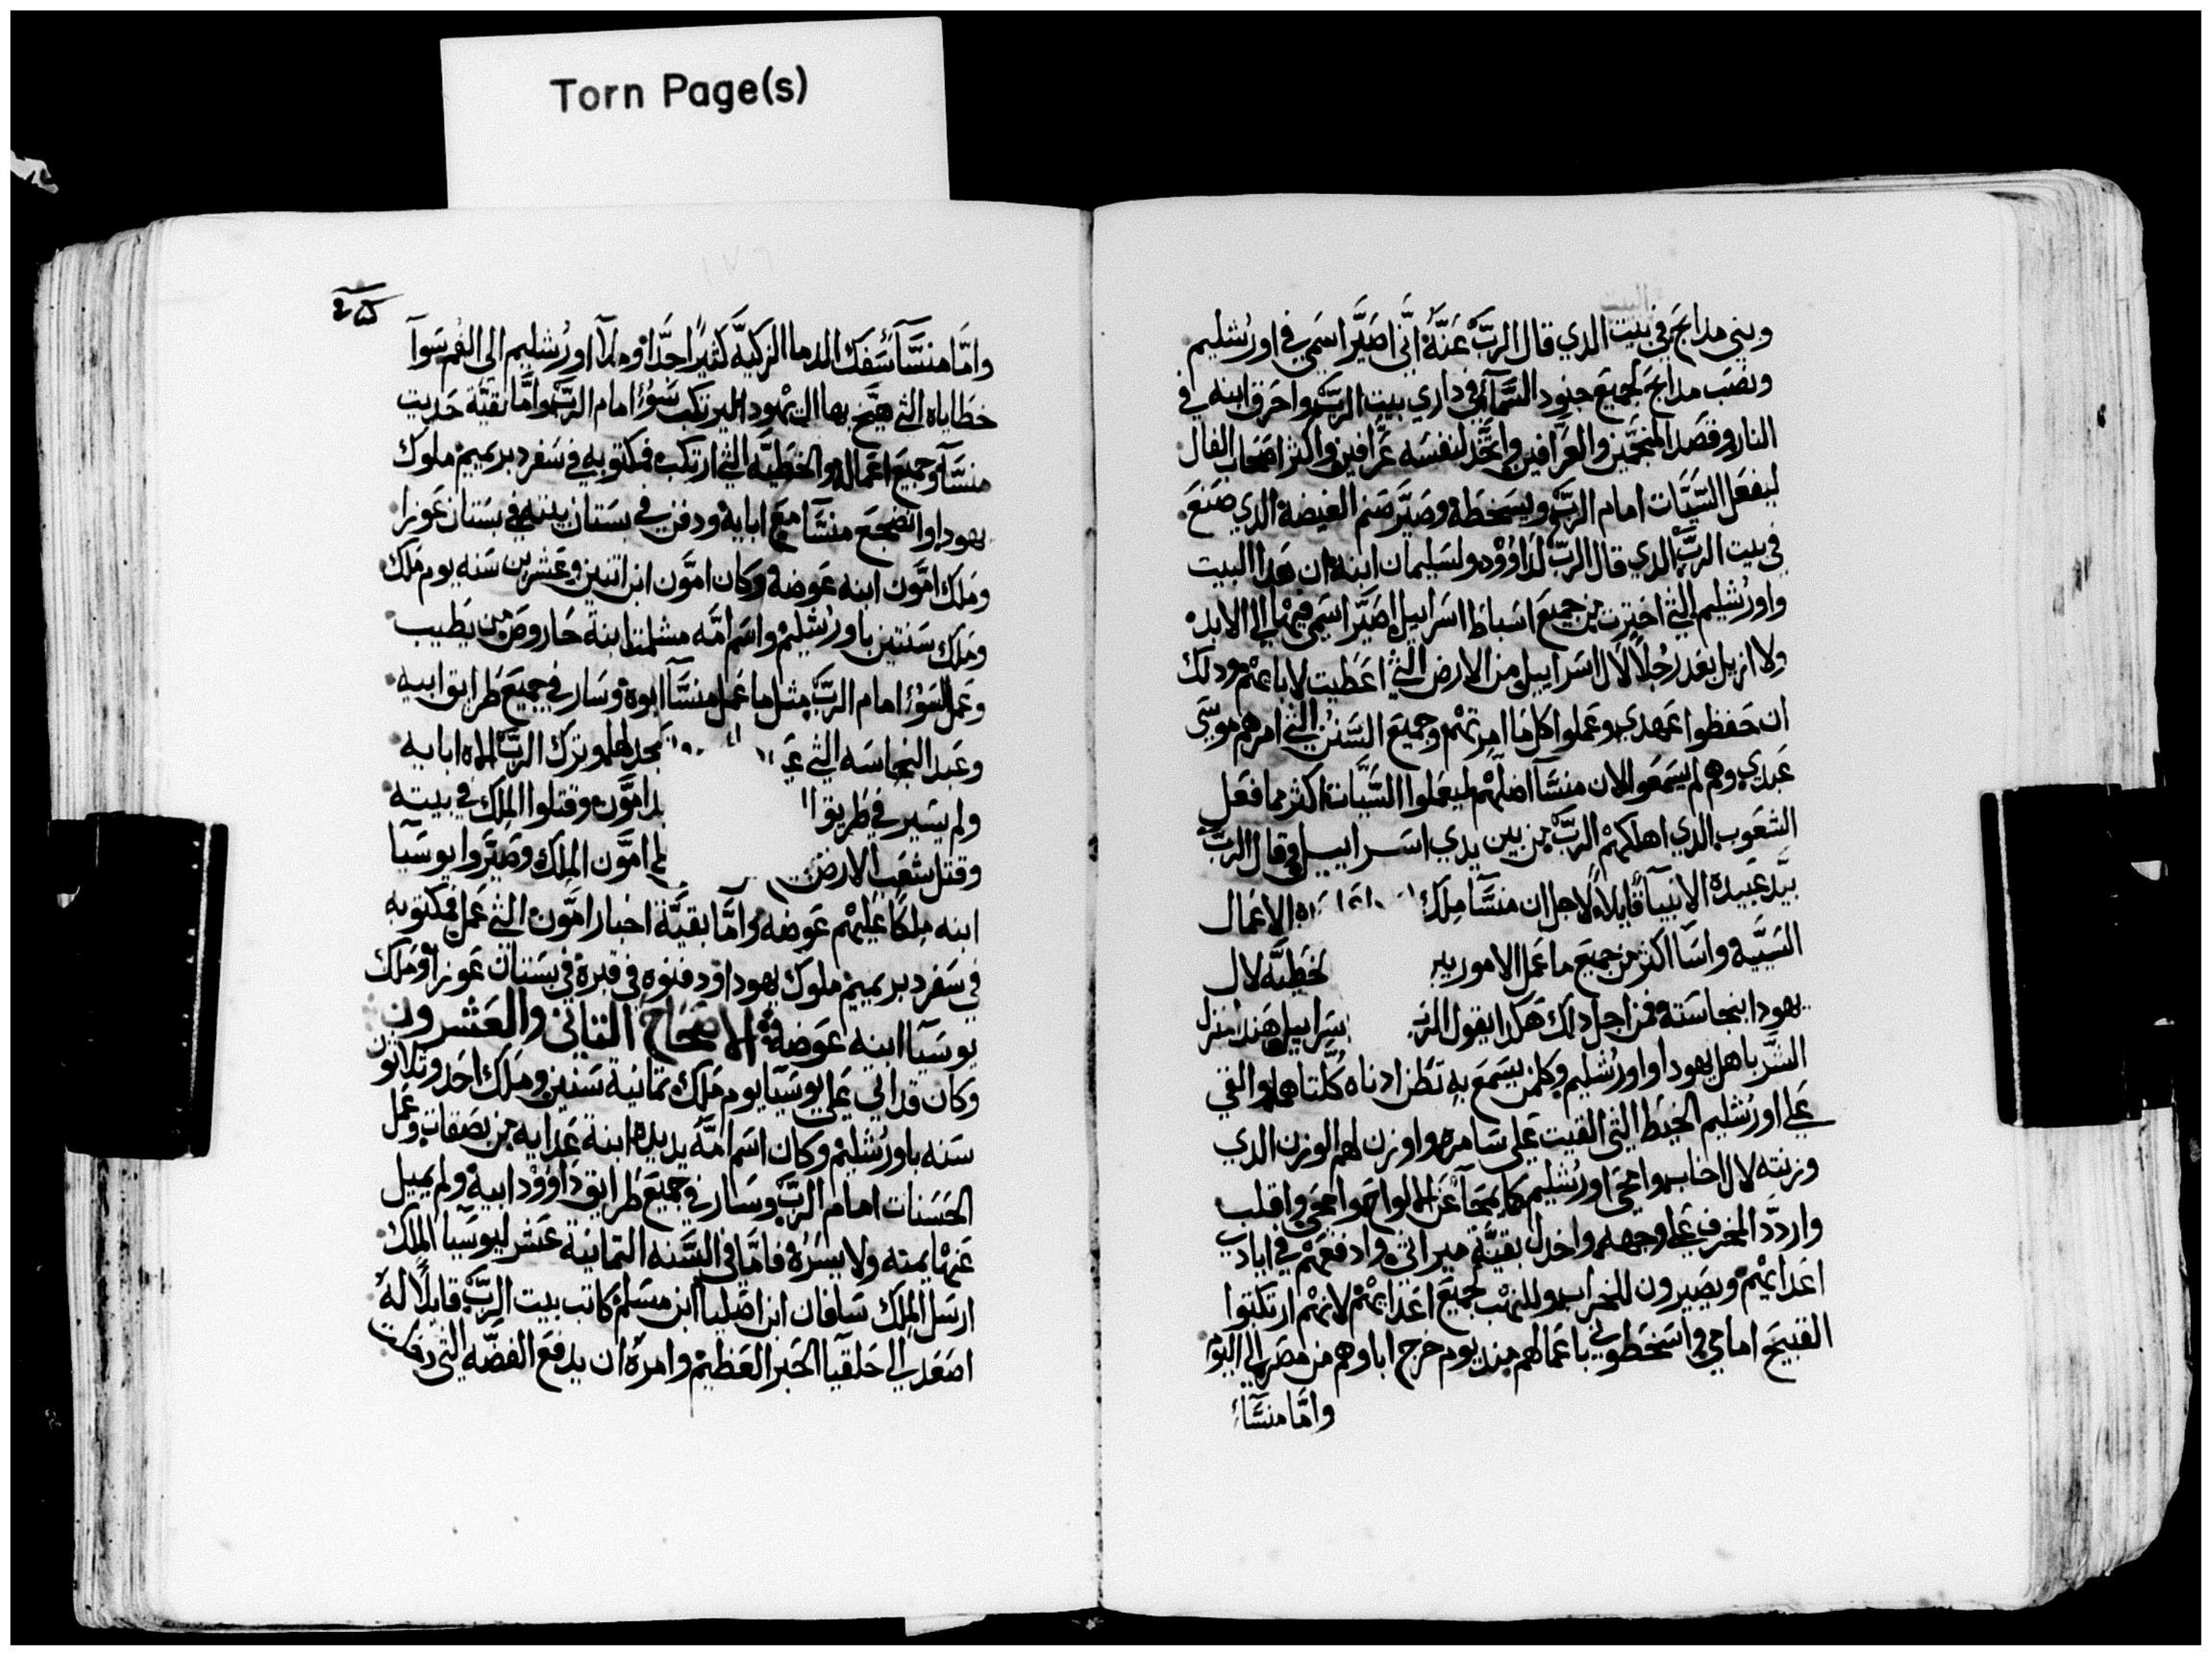 Torn Page(s)
وبني مذابح في بيت الذي قال الرب عنه اني اصير اسمي في اورشليم
ونصب مذابح لجميع جنود السماء في داري بيت الرب واحرق ابنه في
النار وقصد المنجمين والعرافين واتخذ لنفسه عرافين واكثر اصحاب الفال
ليفعل السيات امام الرب ويسخطه وصير صنم الغيضة الذي صنع
في بيت الرب الذي قال الرب لداوود ولسليمان ابنه ان هذا البيت
واورشليم التي اخترت من جميع اسباط اسراييل اصير اسمي فيها الي الابد
ولا ازيل بعد رجلا لال اسراييل من الارض التي اعطيت لابايهم وذلك
ان حفظوا عهدي وعملوا كل ما امرتهم وجميع السنن التي امرهم موسي
عبدي وهم لم يسمعوا لان منسا اضلهم ليعملوا السيات اكثر مما فعل
الشعوب الذي اهلكهم الرب من بين يدي اسراييل وقال الرب
بيد عبيده الانبيا قايلا لاجل ان منسا ملك الاعمال
السيية واسا اكثر من جميع ما عمل الامورين لخطيه لال
يهودا بنجاسته فمن اجل ذلك هكذا يقول الرب سراييل هنذا منزل
الشر باهل يهودا واورشليم وكلمن يسمع به تطن اذناه كلتاهما والقي
علي اورشليم الخيط التي القيت علي سامره واوزن لهم الوزن الذي
وزنته لال اخاب وامحي اورشليم كما يمحا عن الالواح وامحي واقلب
واردد المخرف علي وجهه واخذل بقية ميراثي وادفعهم في ايادي
اعدايهم ويصيرون للخراب وللنهب لجميع اعدايهم لانهم ارتكبوا
القبيح امامي واسخطوني باعمالهم منذ يوم خرج اباوهم من مصر الي اليوم
واما منسا
واما منسا سفك الدما الزكيه كثيرا جدا وملا اورشليم الي الفم سوا
خطاياه التي هيج بها ال يهودا ليرتكب سوء امام الرب واما بقية حديت
منسا وجميع اعماله والخطيه التي ارتكب فمكتوبه في سفر دبريميم ملوك
يهودا وانضجع منسا مع ابايه ودفن في بستان بيته في بستان عوزا
وملك امون ابنه عوضه وكان امون ابن اتنين وعشرين سنه يوم ملك
وملك سنتين باورشليم واسم امه مشلمت ابنة حاروص من يطيب
وعمل السوء امام الرب مثل ما عمل منسا ابوه وسار في جميع طرايق ابيه
وعبد النجاسه التي سجد لها وترك الرب اله ابايه
ولم يسير في طريق امون وقتلوا الملك في بيته
وقتل شعب الارض امون الملك وصيروا يوسيا
ابنه ملكا عليهم عوضه واما بقية اخبار امون التي عمل فمكتوبه
في سفر دبريميم ملوك يهودا ودفنوه في قبره في بستان عوزا وملك
يوسيا ابنه عوضه الاصحاح التاني والعشرون
وكان قد اتي علي يوسيا يوم ملك تمانية سنين وملك احد وتلاتون
سنه باورشليم وكان اسم امه يديده ابنة عدايه من بصقات وعمل
الحسنات امام الرب وسار في جميع طرايق داوود ابيه ولم يميل
عنها يمنه ولا يسره فاما في السنه التمانية عشر ليوسيا الملك
ارسل الملك سافان ابن اصليا ابن مسلم كاتب بيت الرب قايلا له
اصعد الي حلقيا الحبر العظيم وامره ان يدفع الفضه التي